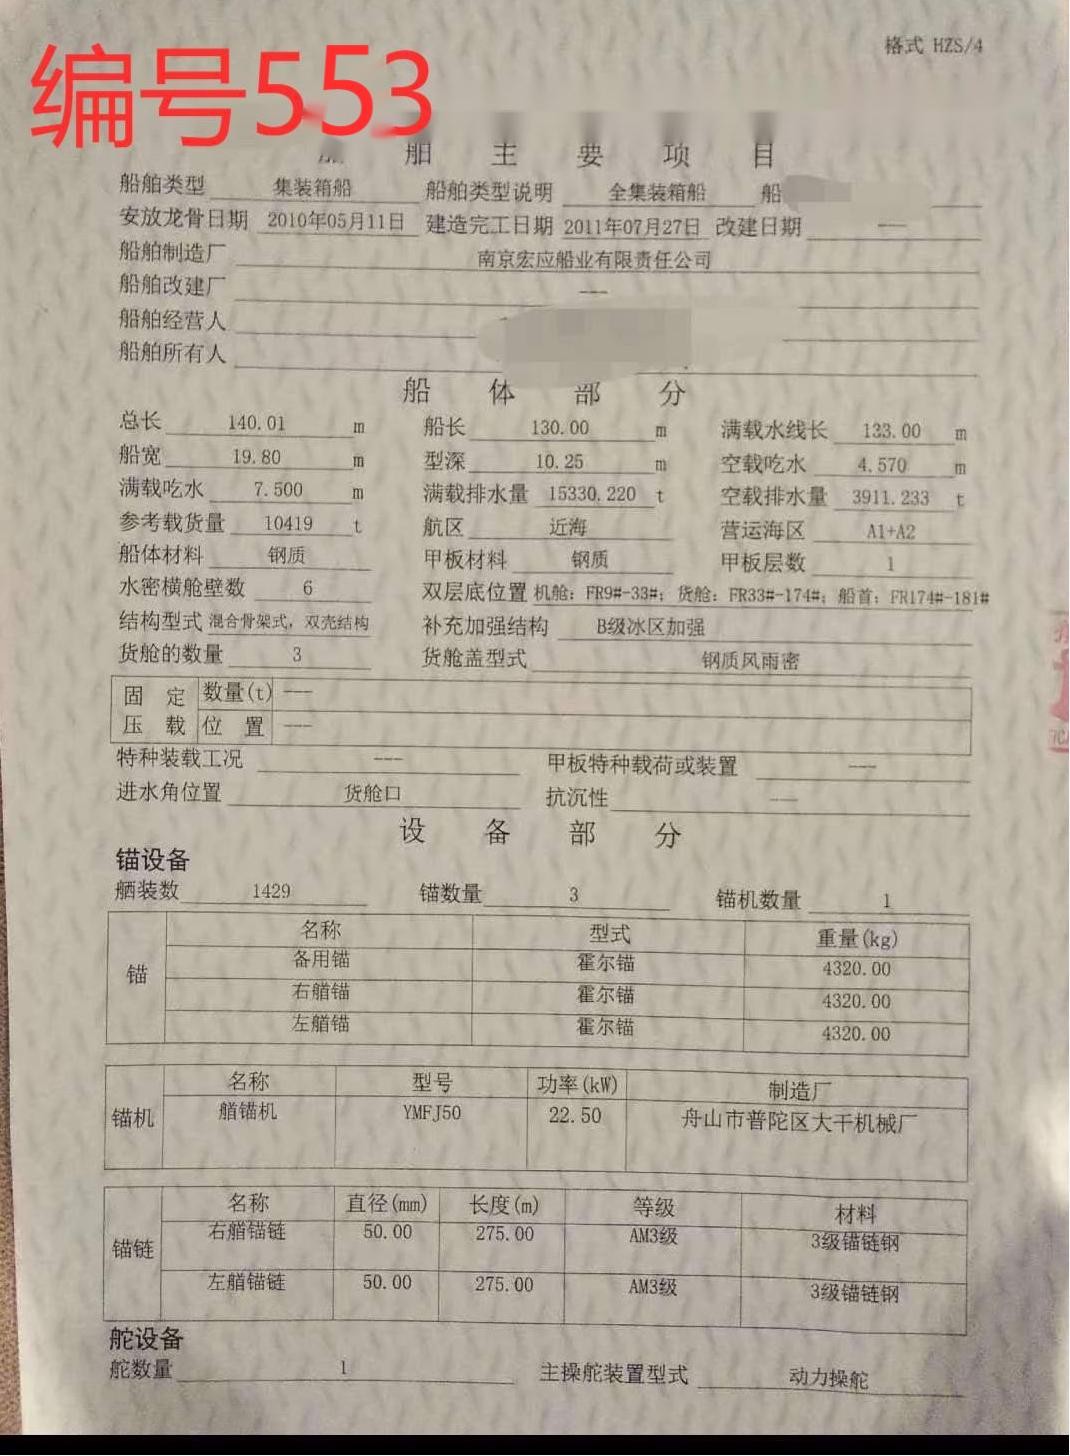 格式 HZS/4
编号553
舶 主 要 项 目
船舶类型 集装箱船 船舶类型说明 全集装箱船 船
安放龙骨日期 2010年05月11日 建造完工日期 2011年07月27日 改建日期 ---
船舶制造厂 南京宏应船业有限责任公司
船舶改建厂 ---
船舶经营人
船舶所有人
船 体 部 分
总长 140.01 m 船长 130.00 m 满载水线长 133.00 m
船宽 19.80 m 型深 10.25 m 空载吃水 4.570 m
满载吃水 7.500 m 满载排水量 15330.220 t 空载排水量 3911.233 t
参考载货量 10419 t 航区 近海 营运海区 A1+A2
船体材料 钢质 甲板材料 钢质 甲板层数 1
水密横舱壁数 6 双层底位置 机舱：FR9#-33#；货舱：FR33#-174#；船首：FR174#-181#
结构型式 混合骨架式，双壳结构 补充加强结构 B级冰区加强
货舱的数量 3 货舱盖型式 钢质风雨密
固 定 数量(t) ---
压 载 位 置 ---
特种装载工况 --- 甲板特种载荷或装置 ---
进水角位置 货舱口 抗沉性 ---
设 备 部 分
锚设备
舾装数 1429 锚数量 3 锚机数量 1
名称 型式 重量(kg)
备用锚 霍尔锚 4320.00
锚 右艏锚 霍尔锚 4320.00
左艏锚 霍尔锚 4320.00
名称 型号 功率(kW) 制造厂
锚机 艏锚机 YMFJ50 22.50 舟山市普陀区大干机械厂
名称 直径(mm) 长度(m) 等级 材料
锚链 右艏锚链 50.00 275.00 AM3级 3级锚链钢
左艏锚链 50.00 275.00 AM3级 3级锚链钢
舵设备
舵数量 1 主操舵装置型式 动力操舵